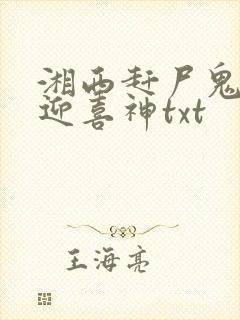 湘西赶尸鬼
迎喜神txt
王海亮